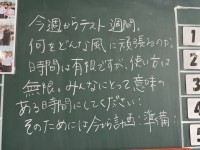 今週からテスト週間。
何をどんな風に頑張るのか。
時間は有限ですが、使い方は
無限。みんなにとって意味の
ある時間にしてください！
そのためには今から計画・準備！
1
2
3
4
5